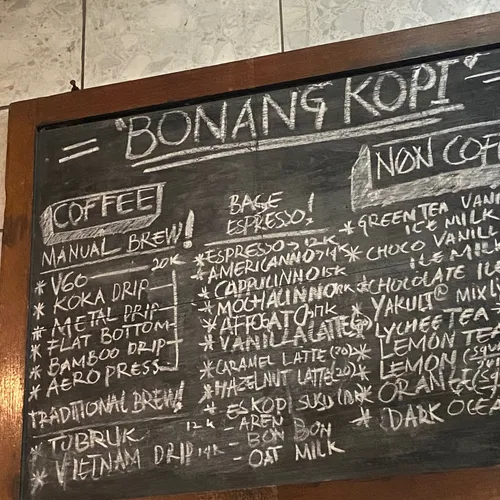 "BONANG KOPI"
COFFEE
MANUAL BREW!
20K
* V60
* KOKA DRIP
* METAL DRIP
* FLAT BOTTOM
* BAMBOO DRIP
* AERO PRESS
TRADITIONAL BREW!
* TUBRUK 12K
* VIETNAM DRIP 14K
BASE
ESPRESSO!
* ESPRESSO 12K
* AMERICANNO 14K
* CAPPUCINNO 15K
* MOCHACINNO
* AFFOGATO 17K
* VANILA LATTE
* CARAMEL LATTE (20)
* HAZELNUT LATTE (20)
* ES KOPI SUSU
- AREN
- BON BON
- OAT MILK
NON COFF
* GREEN TEA VANI
ICE MILK
* CHOCO VANILL
ICE MIL
* CHOCOLATE ICE
* YAKULT MIX
* LYCHEE TEA
* LEMON TEA
* LEMON (SQU
* ORANGE (S
* DARK OCEA